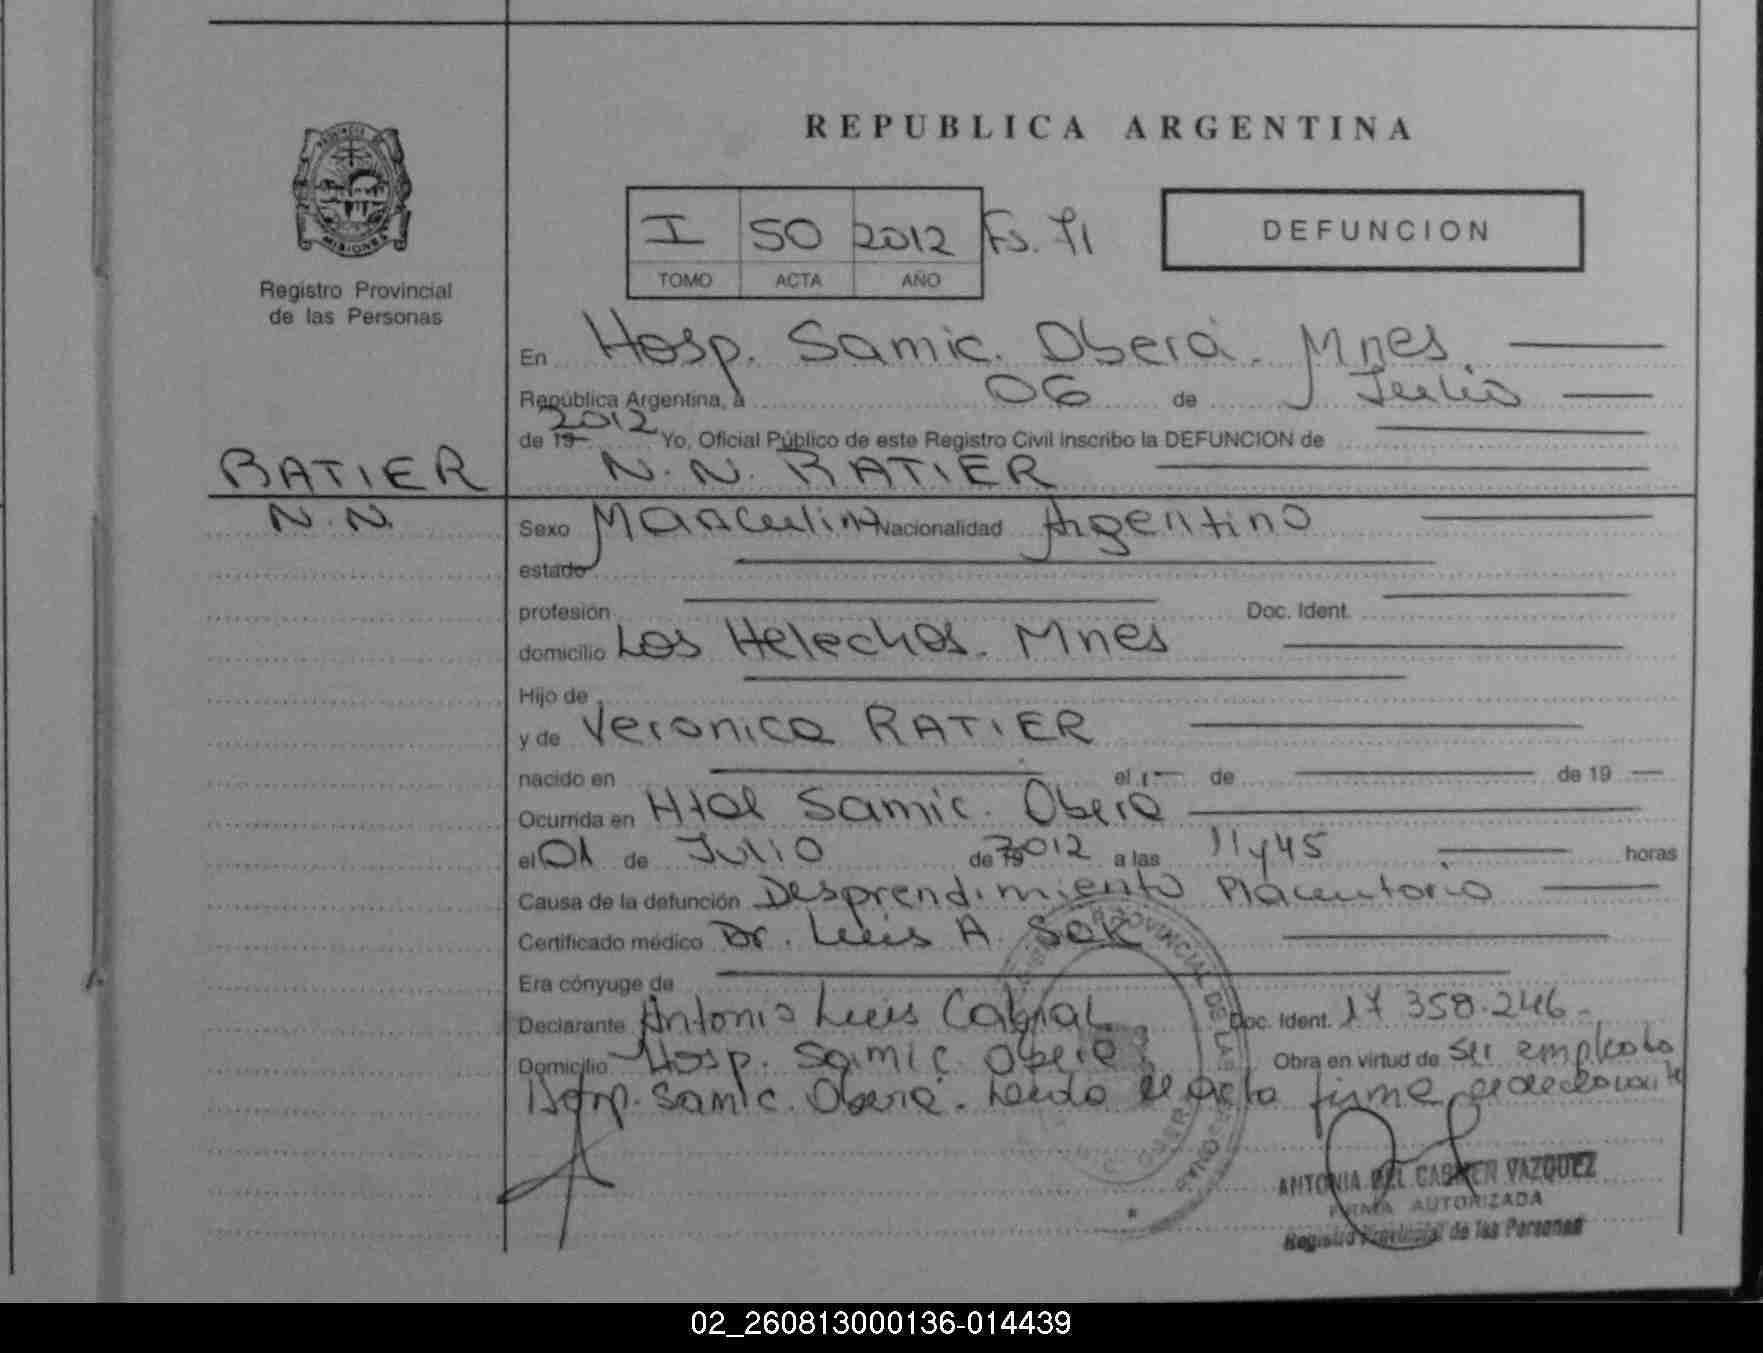 REPUBLICA ARGENTINA
PROVINCIA DE MISIONES
Registro Provincial
de las Personas
I 50 2012 Fs. 71
TOMO ACTA AÑO
DEFUNCION
En Hosp. Samic. Oberá. Mnes.
República Argentina, a 06 de Julio
de 19 2012 Yo, Oficial Público de este Registro Civil inscribo la DEFUNCION de
RATIER N.N. RATIER
N.N.
Sexo Masculino Nacionalidad Argentino
estado
profesión Doc. Ident.
domicilio Los Helechos. Mnes
Hijo de
y de Veronica RATIER
nacido en el de de 19
Ocurrida en Htal Samic. Oberá
el 01 de Julio de 19 2012 a las 11 y 45 horas
Causa de la defunción Desprendimiento Placentario
Certificado médico Dr. Luis A. Sek
Era cónyuge de
Declarante Antonio Luis Cabral Doc. Ident. 17 358.246.
Domicilio Hosp. Samic Oberá Obra en virtud de ser empleado
Hosp. Samic. Oberá. Leída el acta firma el declarante
ANTONIA DEL CARMEN VAZQUEZ
FIRMA AUTORIZADA
Registro Provincial de las Personas
02_260813000136-014439